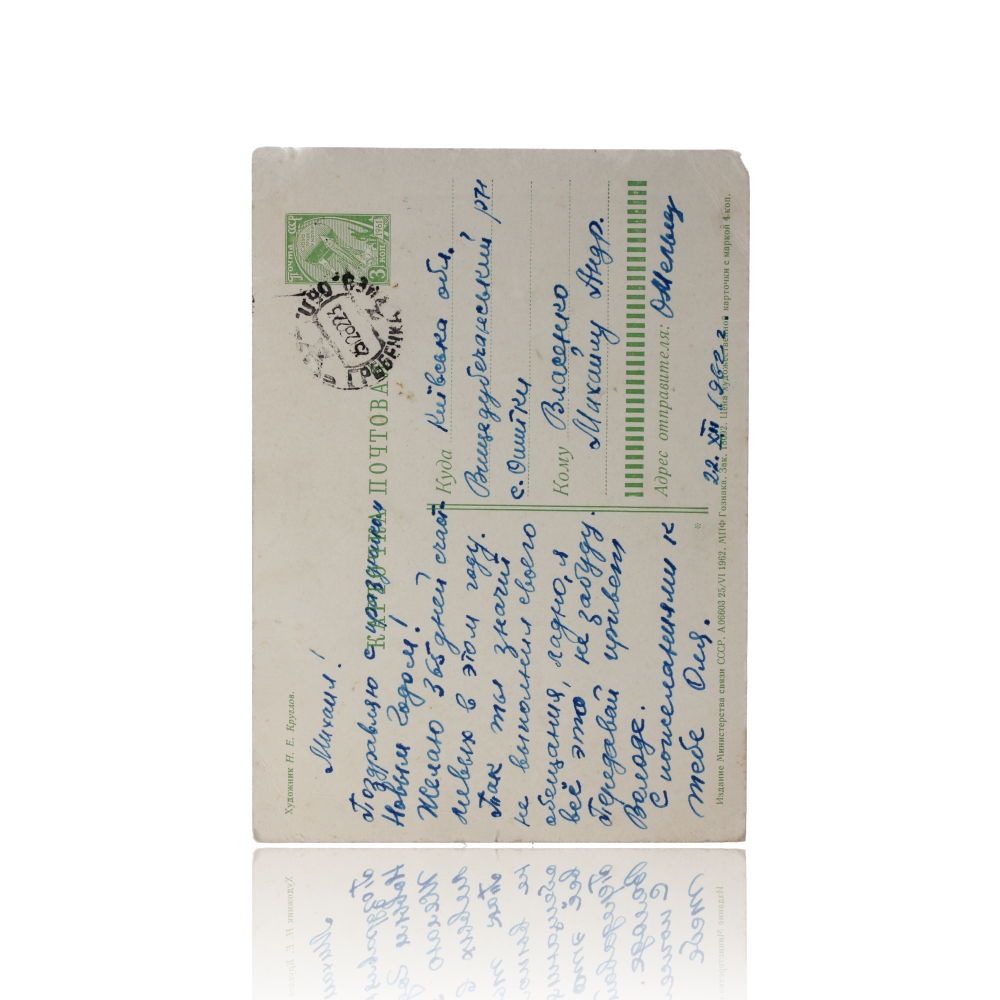 Художник Н. Е. Круглов.
КАРТОЧКА ПОЧТОВАЯ
ПОЧТА СССР
1961
3 КОП
ОБЛ.
Михаил!
Поздравляю с праздником
Новым Годом!
Желаю 365 дней счаст-
ливых в этом году.
Так ты значит
не выполнил своего
обещания, ладно, я
всё это не забуду.
Передавай привет
Володе.
С пожеланиями к
тебе Оля.
Куда Київська обл.
Вищедубечанський р-н
с. Ошитки
Кому Власенко
Михаилу Андр.
Адрес отправителя: Омельяц
22. XII 1962 г.
Издание Министерства связи СССР. А 06603 25/VI 1962. МПФ Гознака. Зак. 18692. Цена художественной карточки с маркой 4 коп.